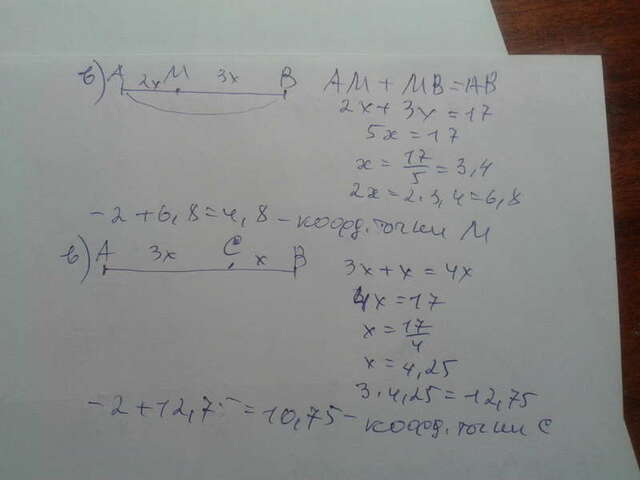 в) A 2x M 3x B
AM + MB = AB
2x + 3x = 17
5x = 17
x = 17/5 = 3,4
2x = 2·3,4 = 6,8
-2 + 6,8 = 4,8 - коорд. точки M
в) A 3x C x B
3x + x = 4x
4x = 17
x = 17/4
x = 4,25
3·4,25 = 12,75
-2 + 12,75 = 10,75 - коорд. точки C